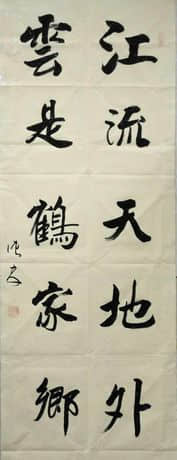 江流天地外
雲是鶴家鄉